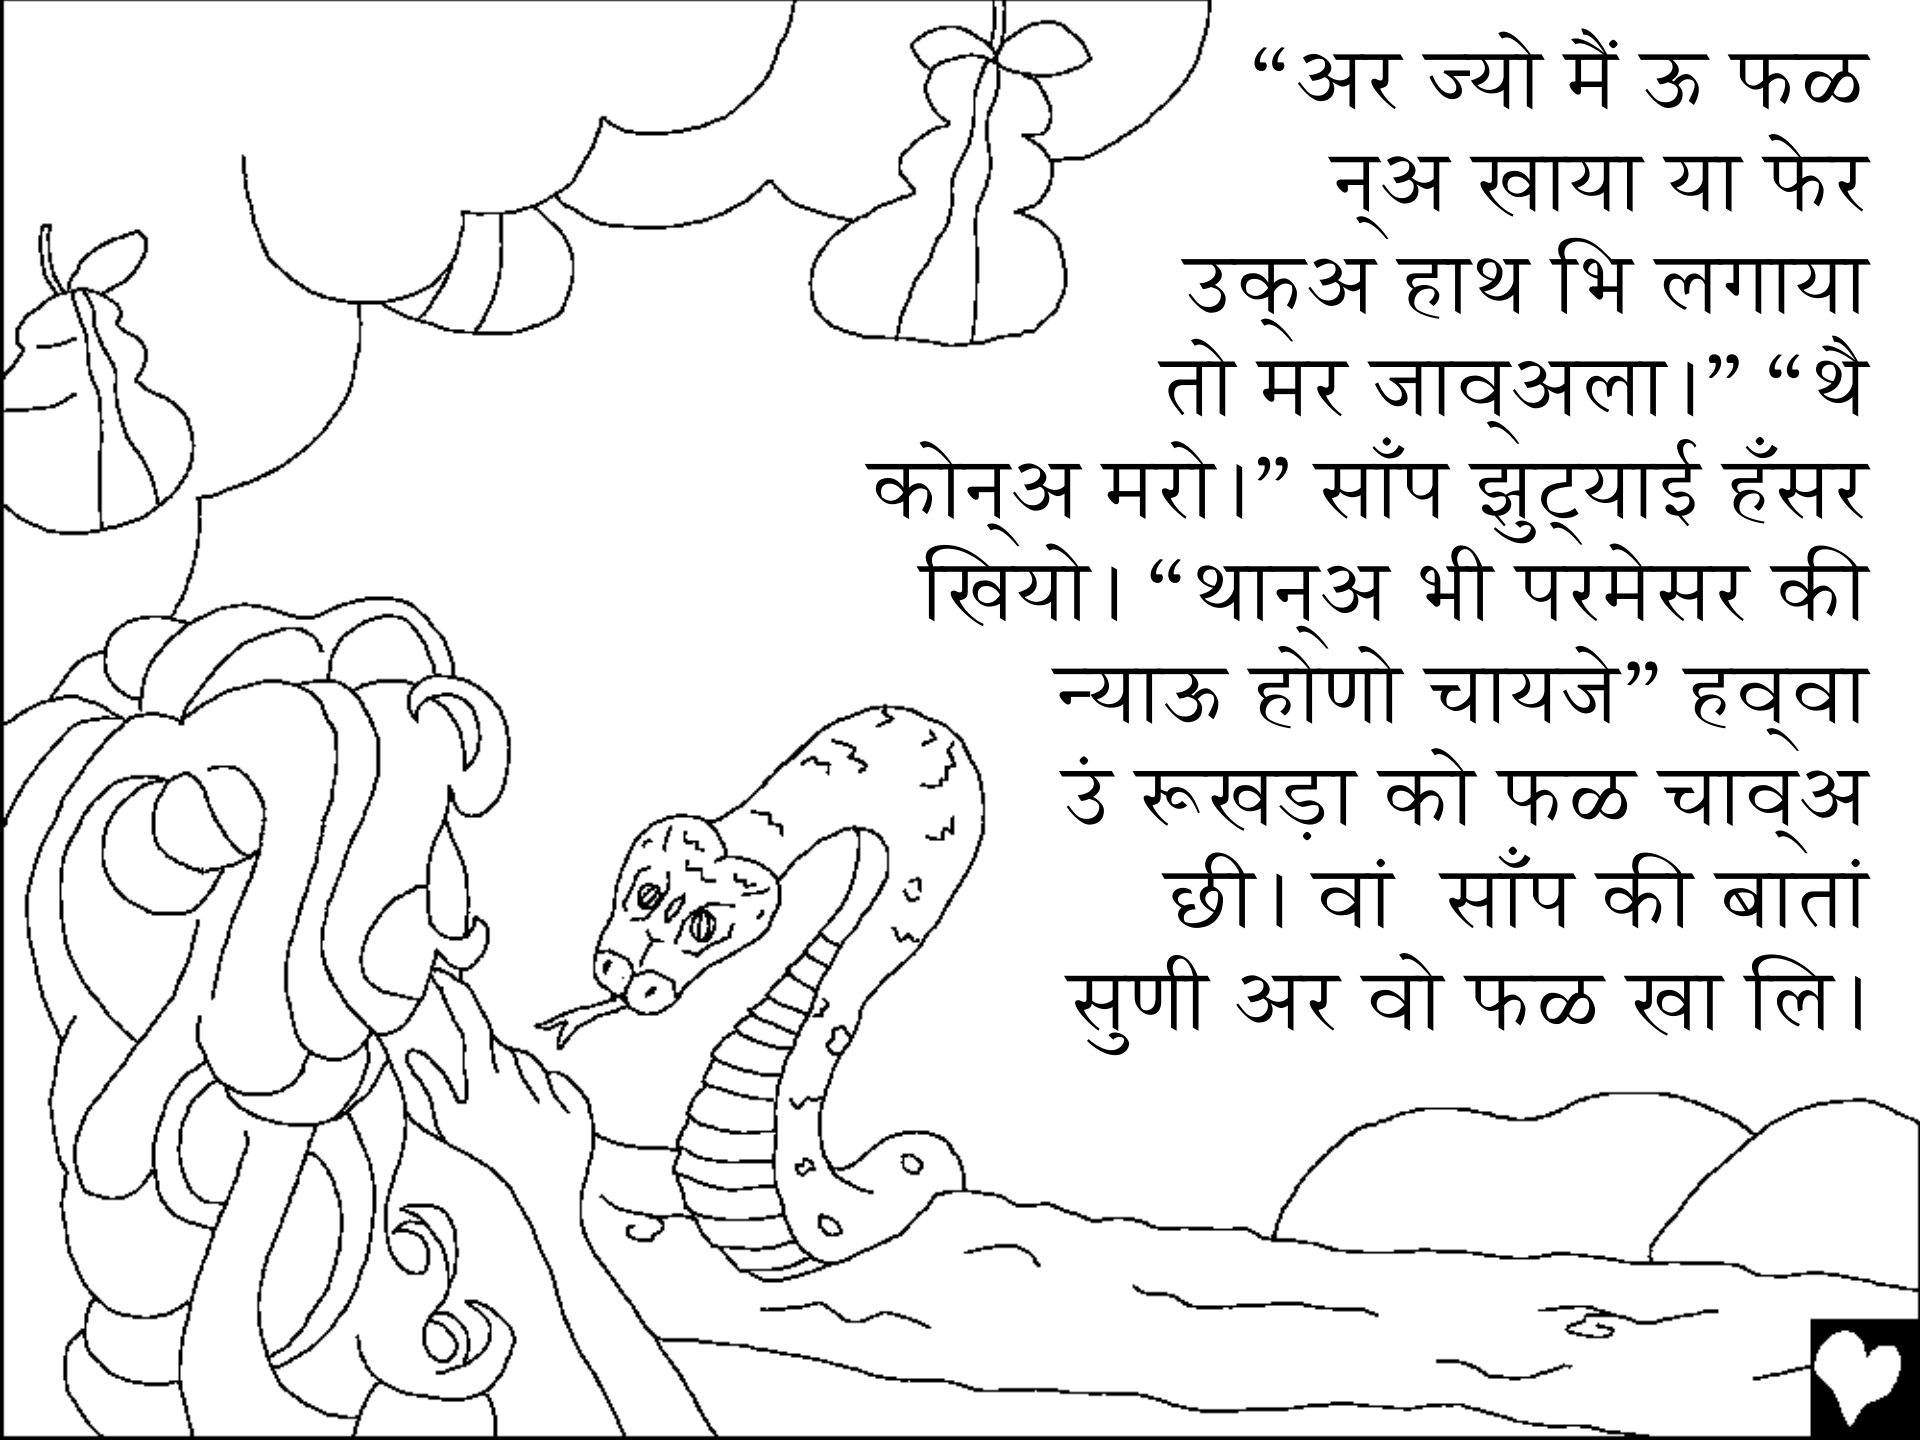 “अर ज्यो मैं ऊ फळ
न्‌अ खाया या फेर
उक्‌अ हाथ भि लगाया
तो मर जाव्‌अला।” “थै
कोन्‌अ मरो।” साँप झुट्‌याई हँसर
खियो। “थान्‌अ भी परमेसर की
न्याऊ होणो चायजे” हव्‌वा
उं रूखड़ा को फळ चाव्‌अ
छी। वां साँप की बातां
सुणी अर वो फळ खा लि।